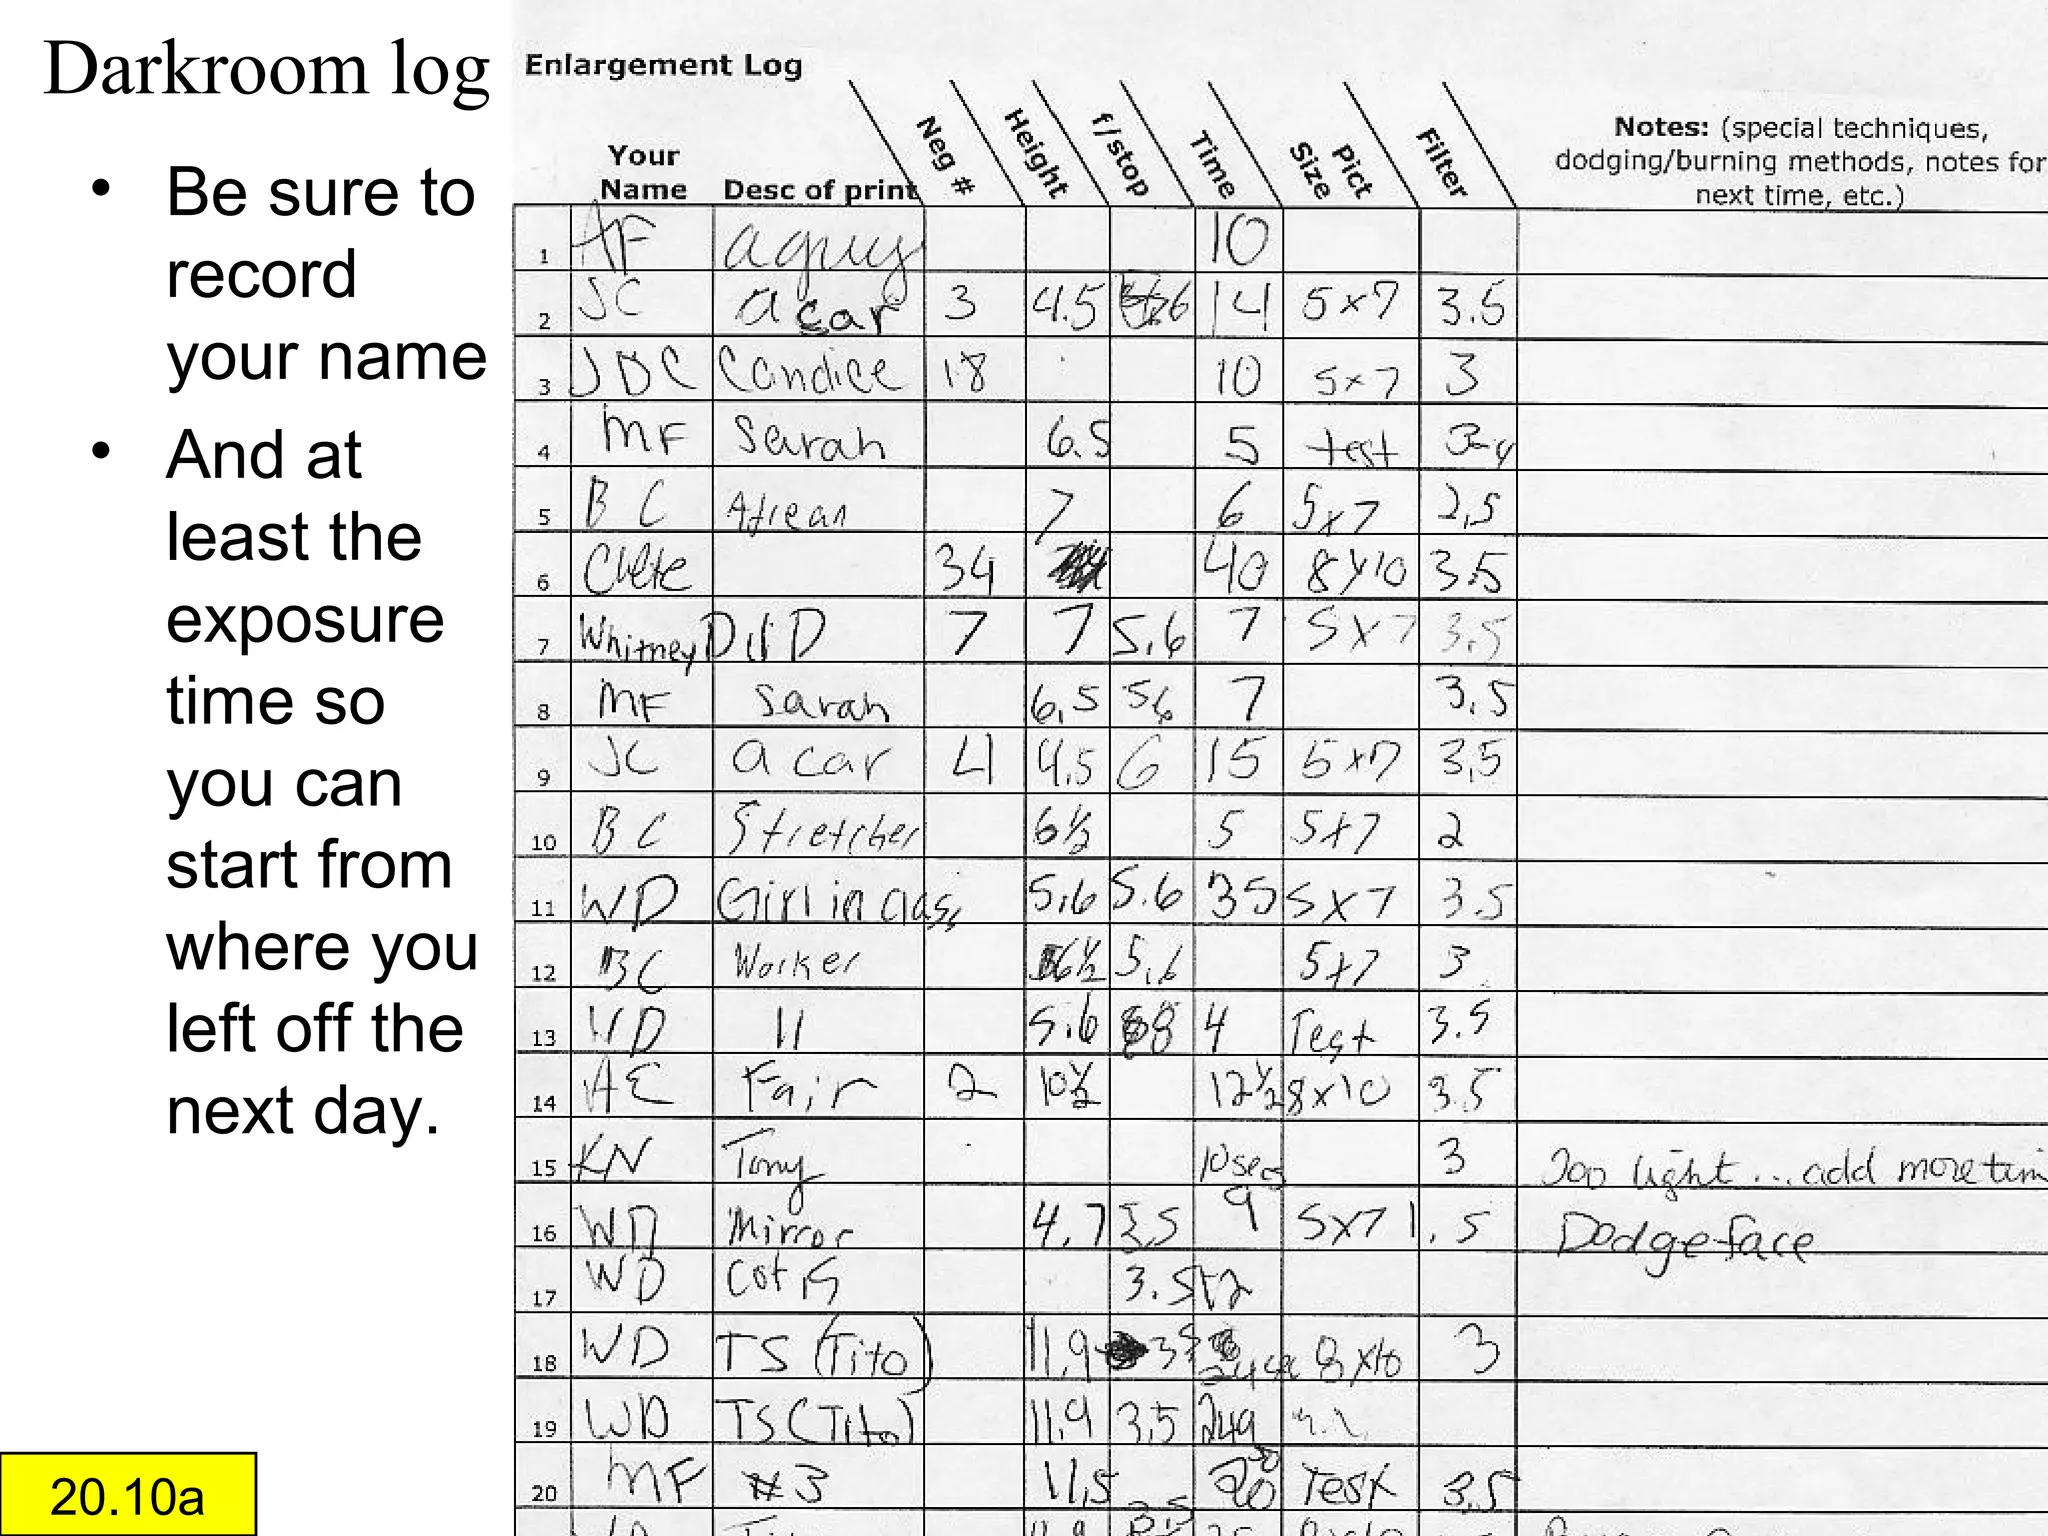 Darkroom log
• Be sure to
record
your name
• And at
least the
exposure
time so
you can
start from
where you
left off the
next day.
20.10a
Enlargement Log
Your Name Desc of print Neg # Height f/stop Time Pict Size Filter Notes: (special techniques, dodging/burning methods, notes for next time, etc.)
1 AF a guy 10
2 JC a car 3 4.5 14 5x7 3.5
3 JDC Candice 18 10 5x7 3
4 MF Sarah 6.5 5 test
5 BC 7 6 5x7 2,5
6 34 40 8x10 3.5
7 Whitney D 7 7 5.6 7 5x7 3.5
8 MF Sarah 6.5 56 7 3.5
9 JC a car 4 4.5 6 15 5x7 3.5
10 BC Stretcher 6½ 5 5x7 2
11 WD Girl in class 5.6 5.6 35 5x7 3.5
12 BC Worker 6½ 5.6 5x7 3
13 WD 11 5.6 8 4 Test 3.5
14 AE Fair 2 10½ 12½ 8x10 3.5
15 KN Tony 10 secs 3 Too light...add more tim
16 WD Mirror 4.7 3.5 9 5x7 1.5 Dodge face
17 WD 3.5
18 WD TS (Tito) 11.9 8x10 3
19 WD TS (Tito) 11.9 3.5
20 MF #3 11.5 20 Test 3.5